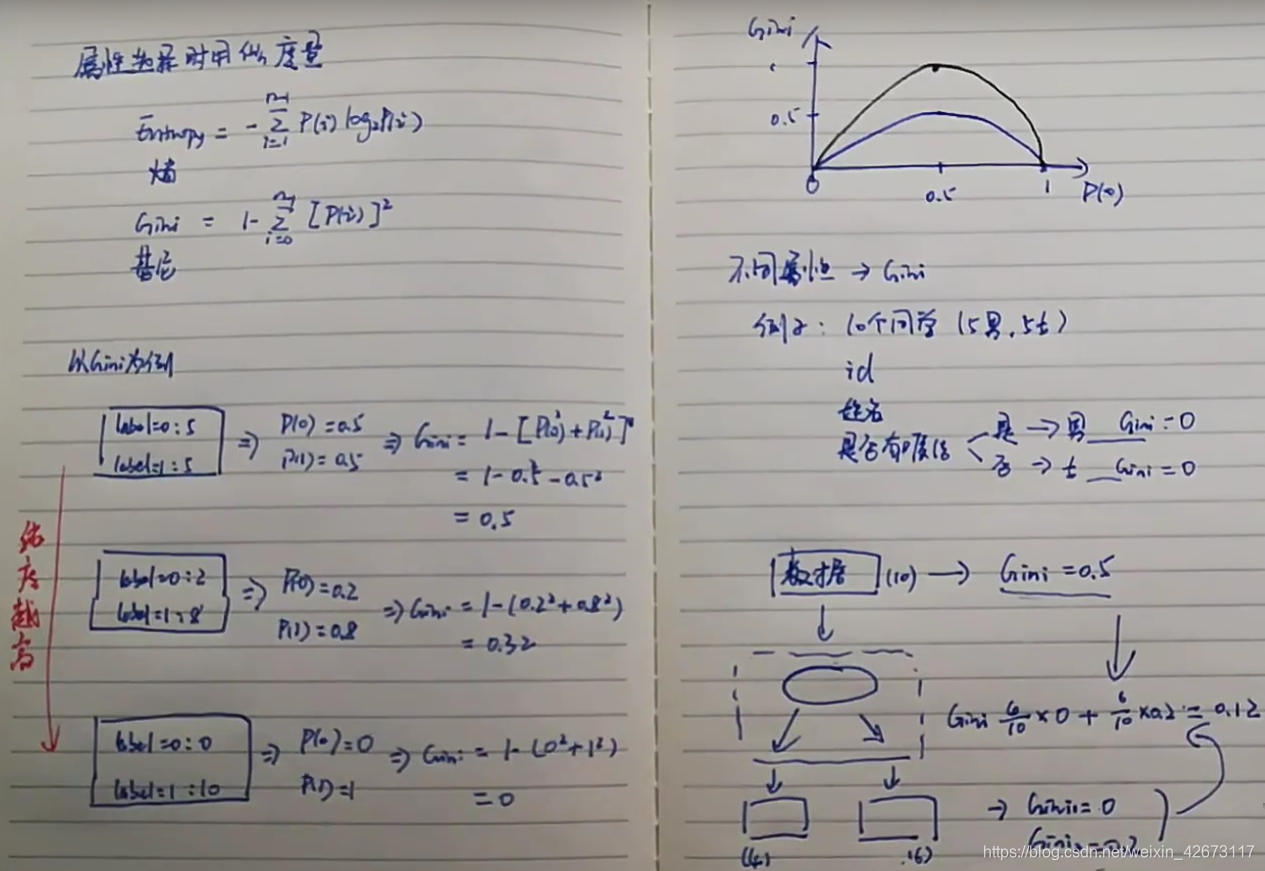 属性选择时用的度量
Entropy = - Σ_{i=1}^{n-1} P(i) log₂P(i)
熵
Gini = 1- Σ_{i=0}^{n-1} [P(i)]²
基尼
以Gini为例
label=0:5
label=1:5
⇒ P(0)=0.5
P(1)=0.5
⇒ Gini = 1-[P(0)²+P(1)²]
= 1-0.5²-0.5²
= 0.5
label=0:2
label=1:8
⇒ P(0)=0.2
P(1)=0.8
⇒ Gini = 1-(0.2²+0.8²)
= 0.32
label=0:0
label=1:10
⇒ P(0)=0
P(1)=1
⇒ Gini = 1-(0²+1²)
= 0
纯度越高
Gini
0.5
0
0.5
1
P(0)
不同属性 → Gini
例子: 10个同学 (5男,5女)
id
姓名
是否有喉结
是 → 男 Gini=0
否 → 女 Gini=0
数据 (10) → Gini=0.5
Gini /10 ×0 + 6/10 ×0.2 = 0.12
→ Gini1=0
Gini2=0.2
(4)
(6)
https://blog.csdn.net/weixin_42673117